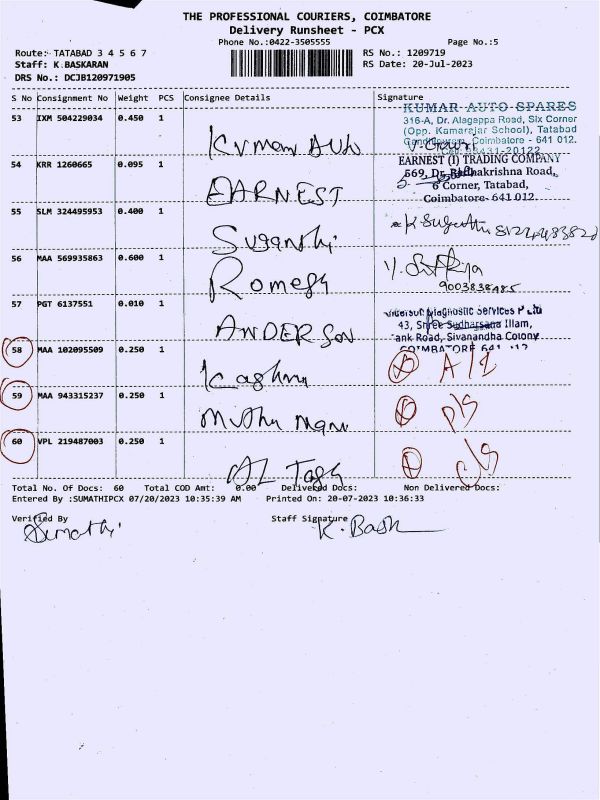 THE PROFESSIONAL COURIERS, COIMBATORE
Delivery Runsheet - PCX
Phone No.:0422-3505555 Page No.:5
Route: TATABAD 3 4 5 6 7 RS No.: 1209719
Staff: K BASKARAN RS Date: 20-Jul-2023
DRS No.: DCJB120971905
S No Consignment No Weight PCS Consignee Details Signature
KUMAR AUTO SPARES
53 IXM 504229034 0.450 1 316-A, Dr. Alagappa Road, Six Corner
(Opp. Kamarajar School), Tatabad
Kumar Auto Coimbatore - 641 012.
EARNEST (I) TRADING COMPANY
54 KRR 1260665 0.095 1 569, Dr. Radhakrishna Road,
6 Corner, Tatabad,
EARNEST Coimbatore- 641 012.
55 SLM 324495953 0.400 1
Suganthi
56 MAA 569935863 0.600 1
Romesh 9003838485
57 PGT 6137551 0.010 1 Diagnostic Services P Ltd
43, Shree Sudharsana Illam,
ANDERSON ank Road, Sivanandha Colony
58 MAA 102095509 0.250 1 COIMBATORE 641 012
A/L
59 MAA 943315237 0.250 1
Muthu Mani P/S
60 VPL 219487003 0.250 1
AL Tags C/S
Total No. Of Docs: 60 Total COD Amt: 0.00 Delivered Docs: Non Delivered Docs:
Entered By :SUMATHIPCX 07/20/2023 10:35:39 AM Printed On: 20-07-2023 10:36:33
Verified By Staff Signature
Sumathi K. Bask